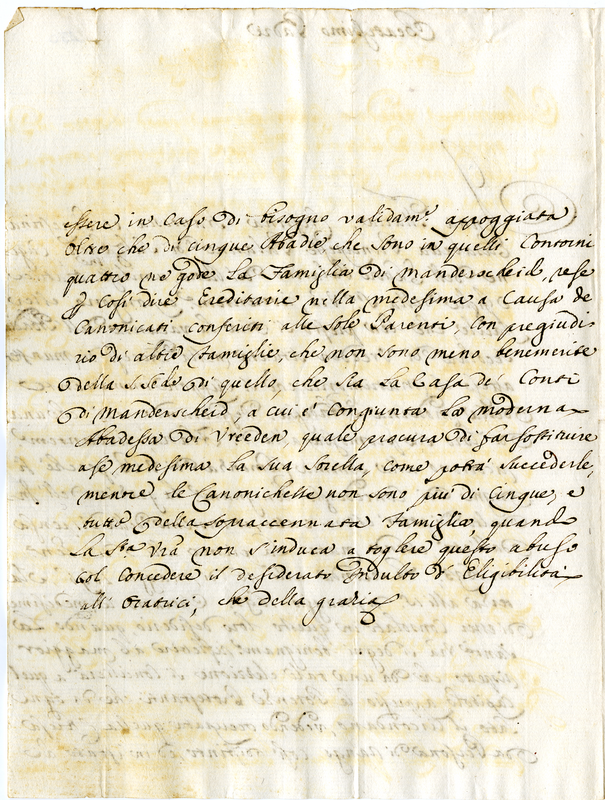 essere in Caso di bisogno validam.e appoggiata
oltre che di cinque Abadie che sono in quelli Contorni
quattro ne gode La Famiglia di Manderscheid, rese
p Così dire Ereditarie nella medesima a Causa de
Canonicati conferiti alle sole Parenti, con pregiudi=
zio di altre famiglie, che non sono meno benemerite
della S. Sede di quello, che sia La Casa de Conti
di Manderscheid, a cui è congiunta La moderna
Abadessa di Vreeden, quale procura di far sostituire
a se medesima la sua sorella, come potrà succederle,
mentre le Canonichesse non sono più di Cinque, e
tutte della sopraccennata Famiglia, quando
La S.tà V̄rā non s'induca a togliere questo abuso
Col concedere il desiderato Indulto d'Eligibilità
all'Oratrici, che della grazia